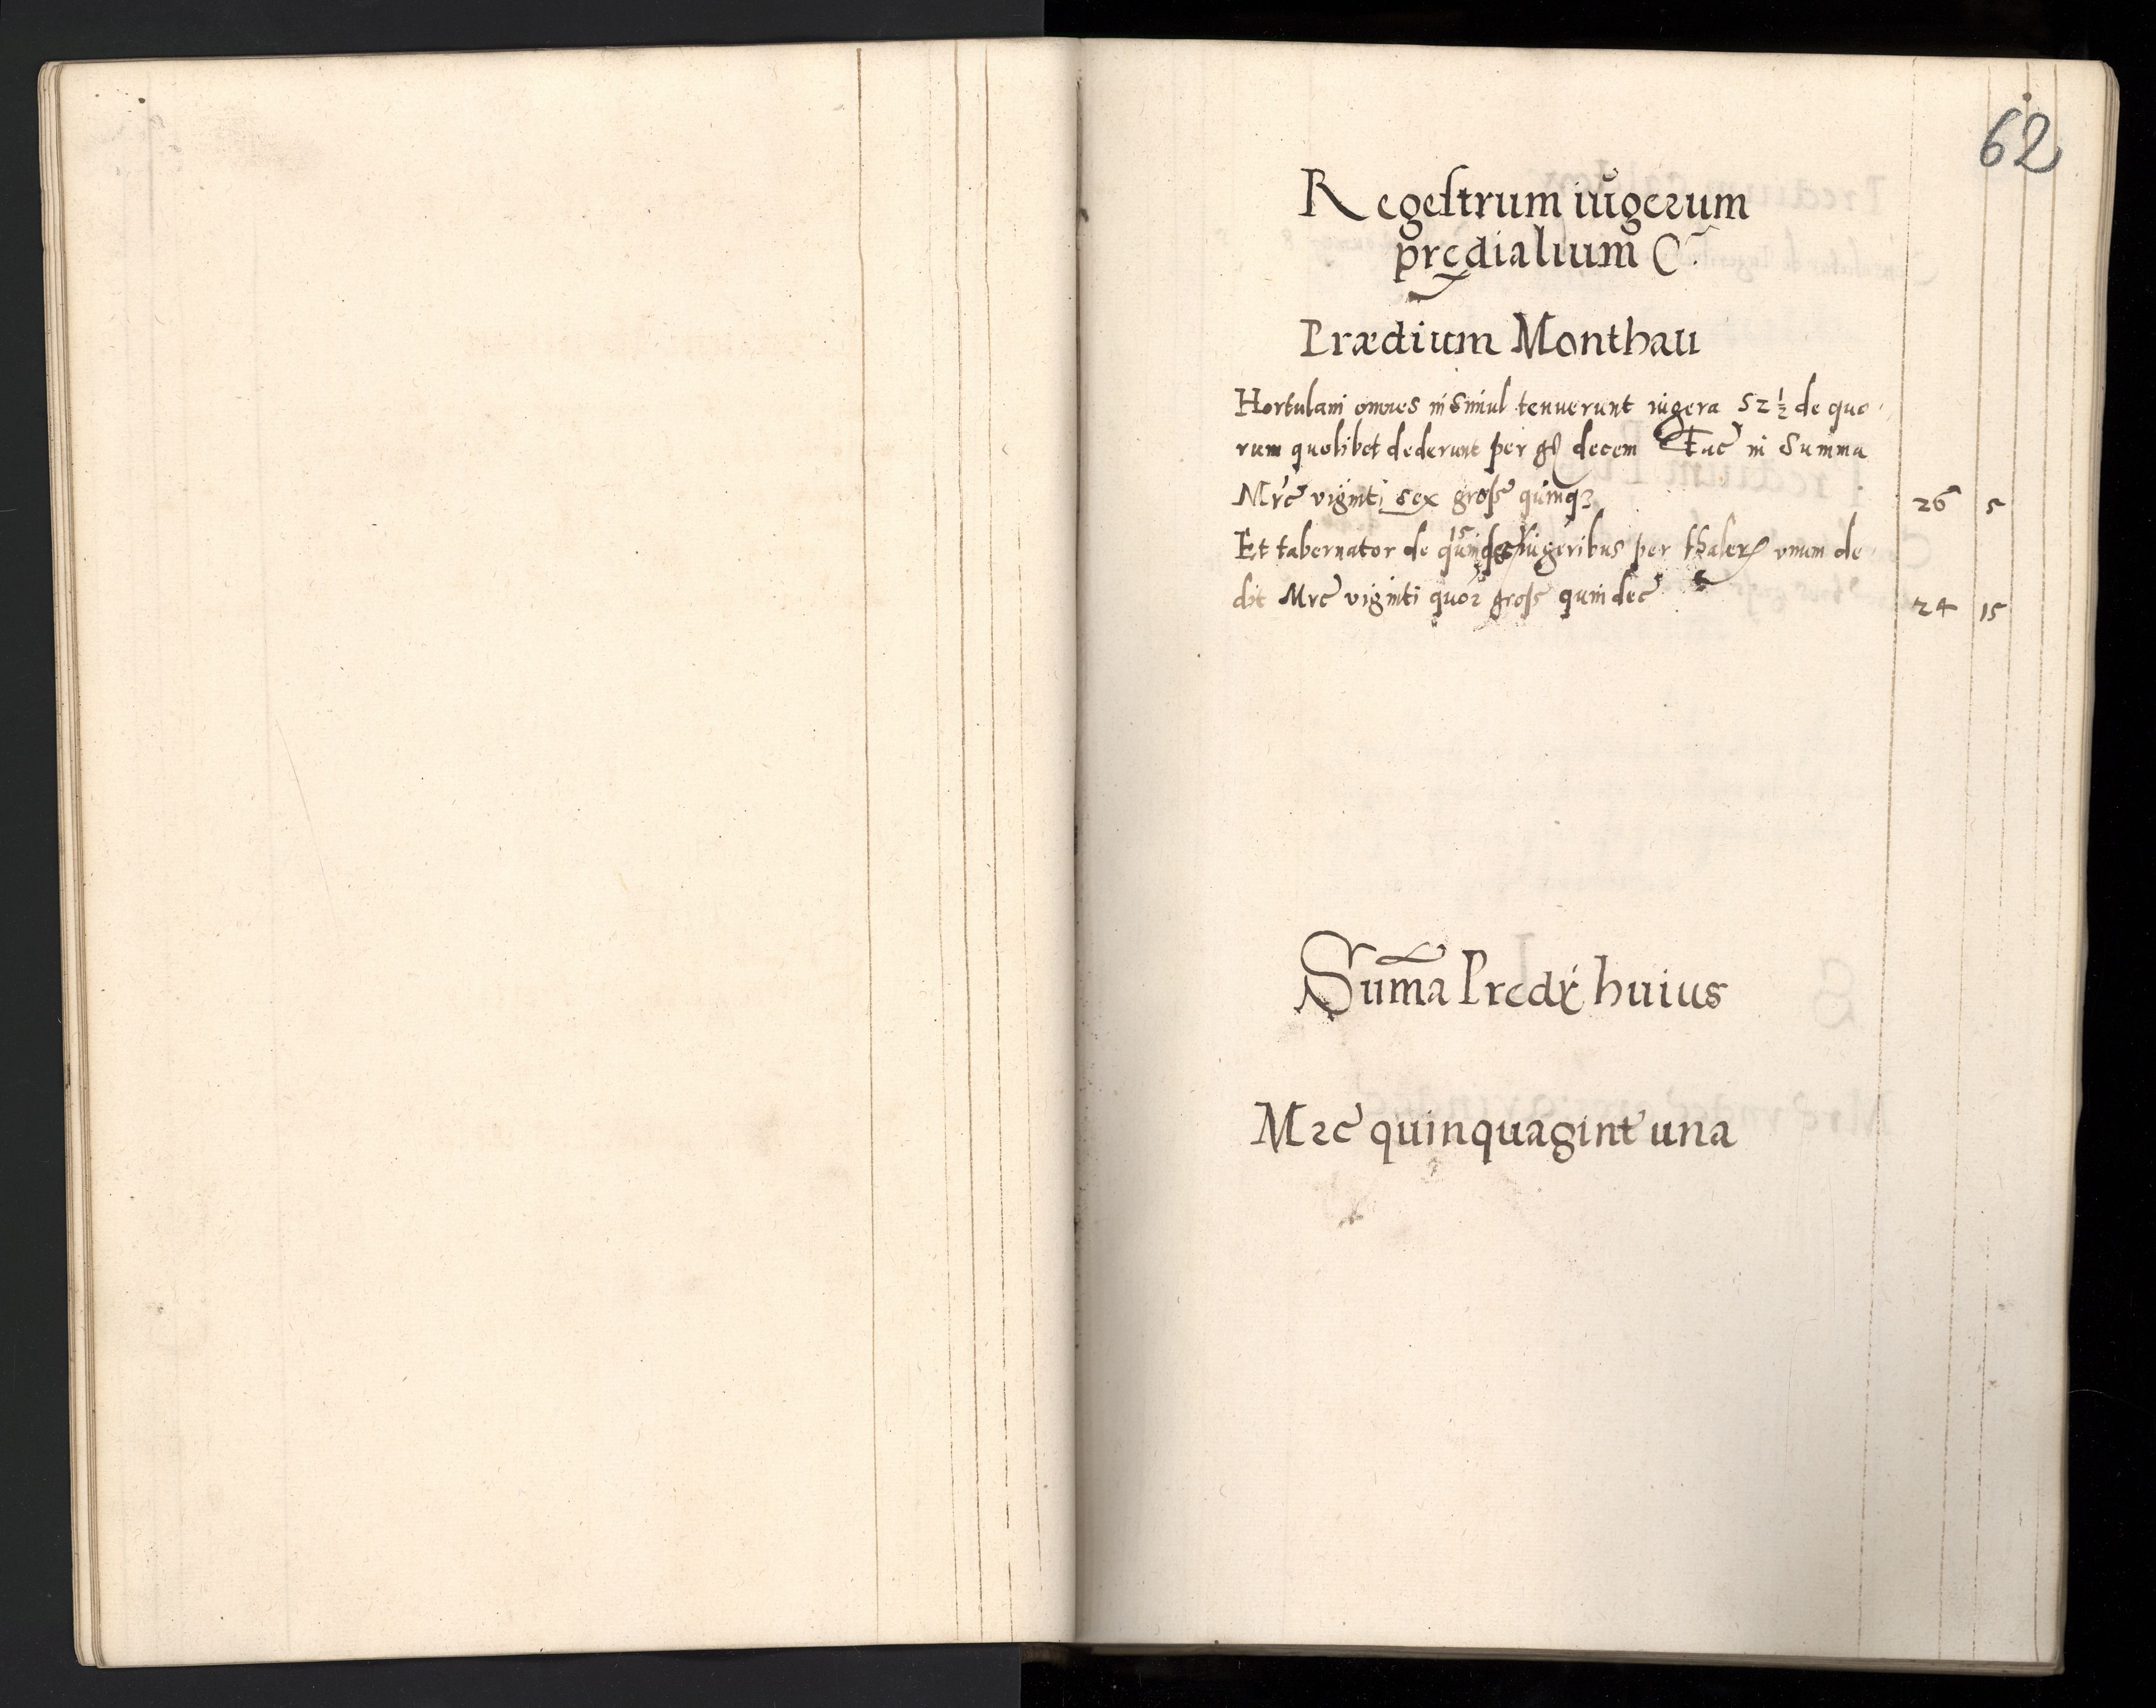 62
Regestrum iugerum
prędialium
Prædium Monthau
Hortulani omnes insimul tenuerunt iugera 52 ½ de quo
rum quolibet dederunt per gr decem Fac in Summa
Mrc viginti sex gross quinq3 26 5
Et tabernator de 15 iugeribus per thaler unum de
dit Mrc viginti quor gross quindec 24 15
Suma Predy huius
Mrc quinquagint una